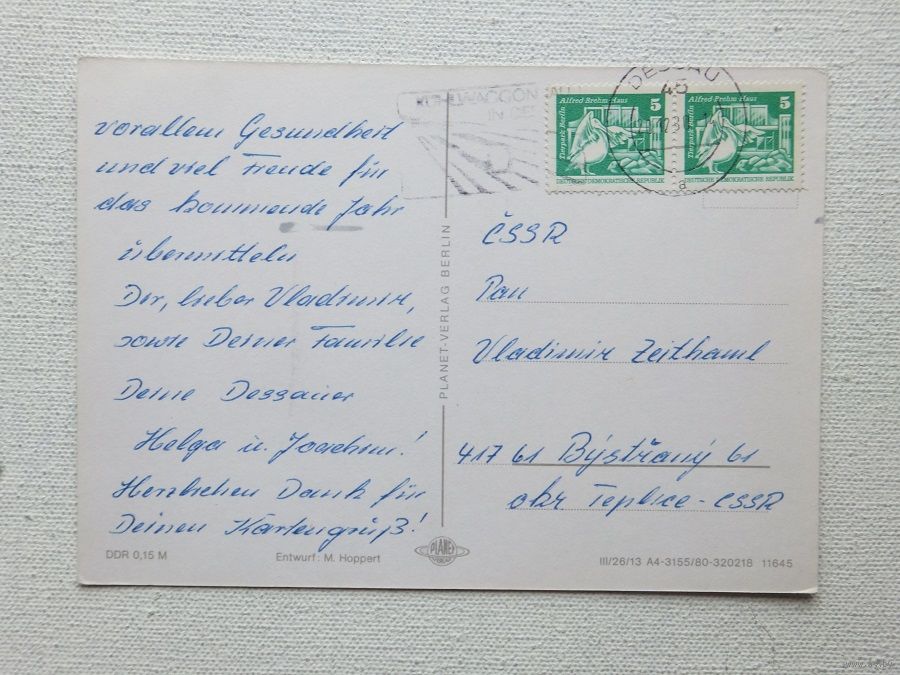 vorallem Gesundheit
und viel Freude für
das kommende Jahr
übermitteln
Dir, lieber Vladimir,
sowie Deiner Familie
Deine Dessauer
Helga u. Joachim!
Herzlichen Dank für
Deinen Kartengruß!
DDR 0,15 M
Entwurf: M. Hoppert
PLANET-VERLAG BERLIN
PLANET
DESSAU
45
a
Alfred-Brehm-Haus 5
Tierpark Berlin
DEUTSCHE DEMOKRATISCHE REPUBLIK
Alfred-Brehm-Haus 5
Tierpark Berlin
DEUTSCHE DEMOKRATISCHE REPUBLIK
ČSSR
Pan
Vladimir Zeithaml
417 61 Býstřaný 61
okr Teplice - ČSSR
III/26/13 A4-3155/80-320218 11645